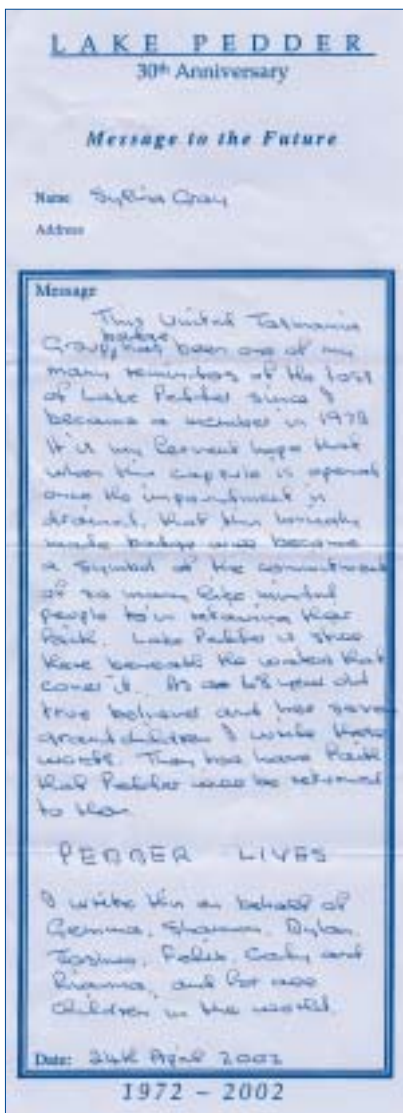 LAKE PEDDER
30th Anniversary
Message to the Future
Name Sylvia Gray
Address
Message
This United Tasmania
badge
Group has been one of my
many reminders of the loss
of Lake Pedder since I
became a member in 1972
It is my fervent hope that
when this capsule is opened
once the impoundment is
drained, that this
made badge will become
a symbol of the commitment
of so many like minded
people to in retaining their
Faith. Lake Pedder is still
there beneath the waters that
cover it. As a 68 year old
true believer and has seven
grandchildren I write these
words. They too have Faith
that Pedder will be returned
to them
PEDDER LIVES
I write this on behalf of
Gemma, Shannon, Dylan,
Felix, and
Rianna, and for all
children in the world.
Date: 24th April 2002
1972 – 2002